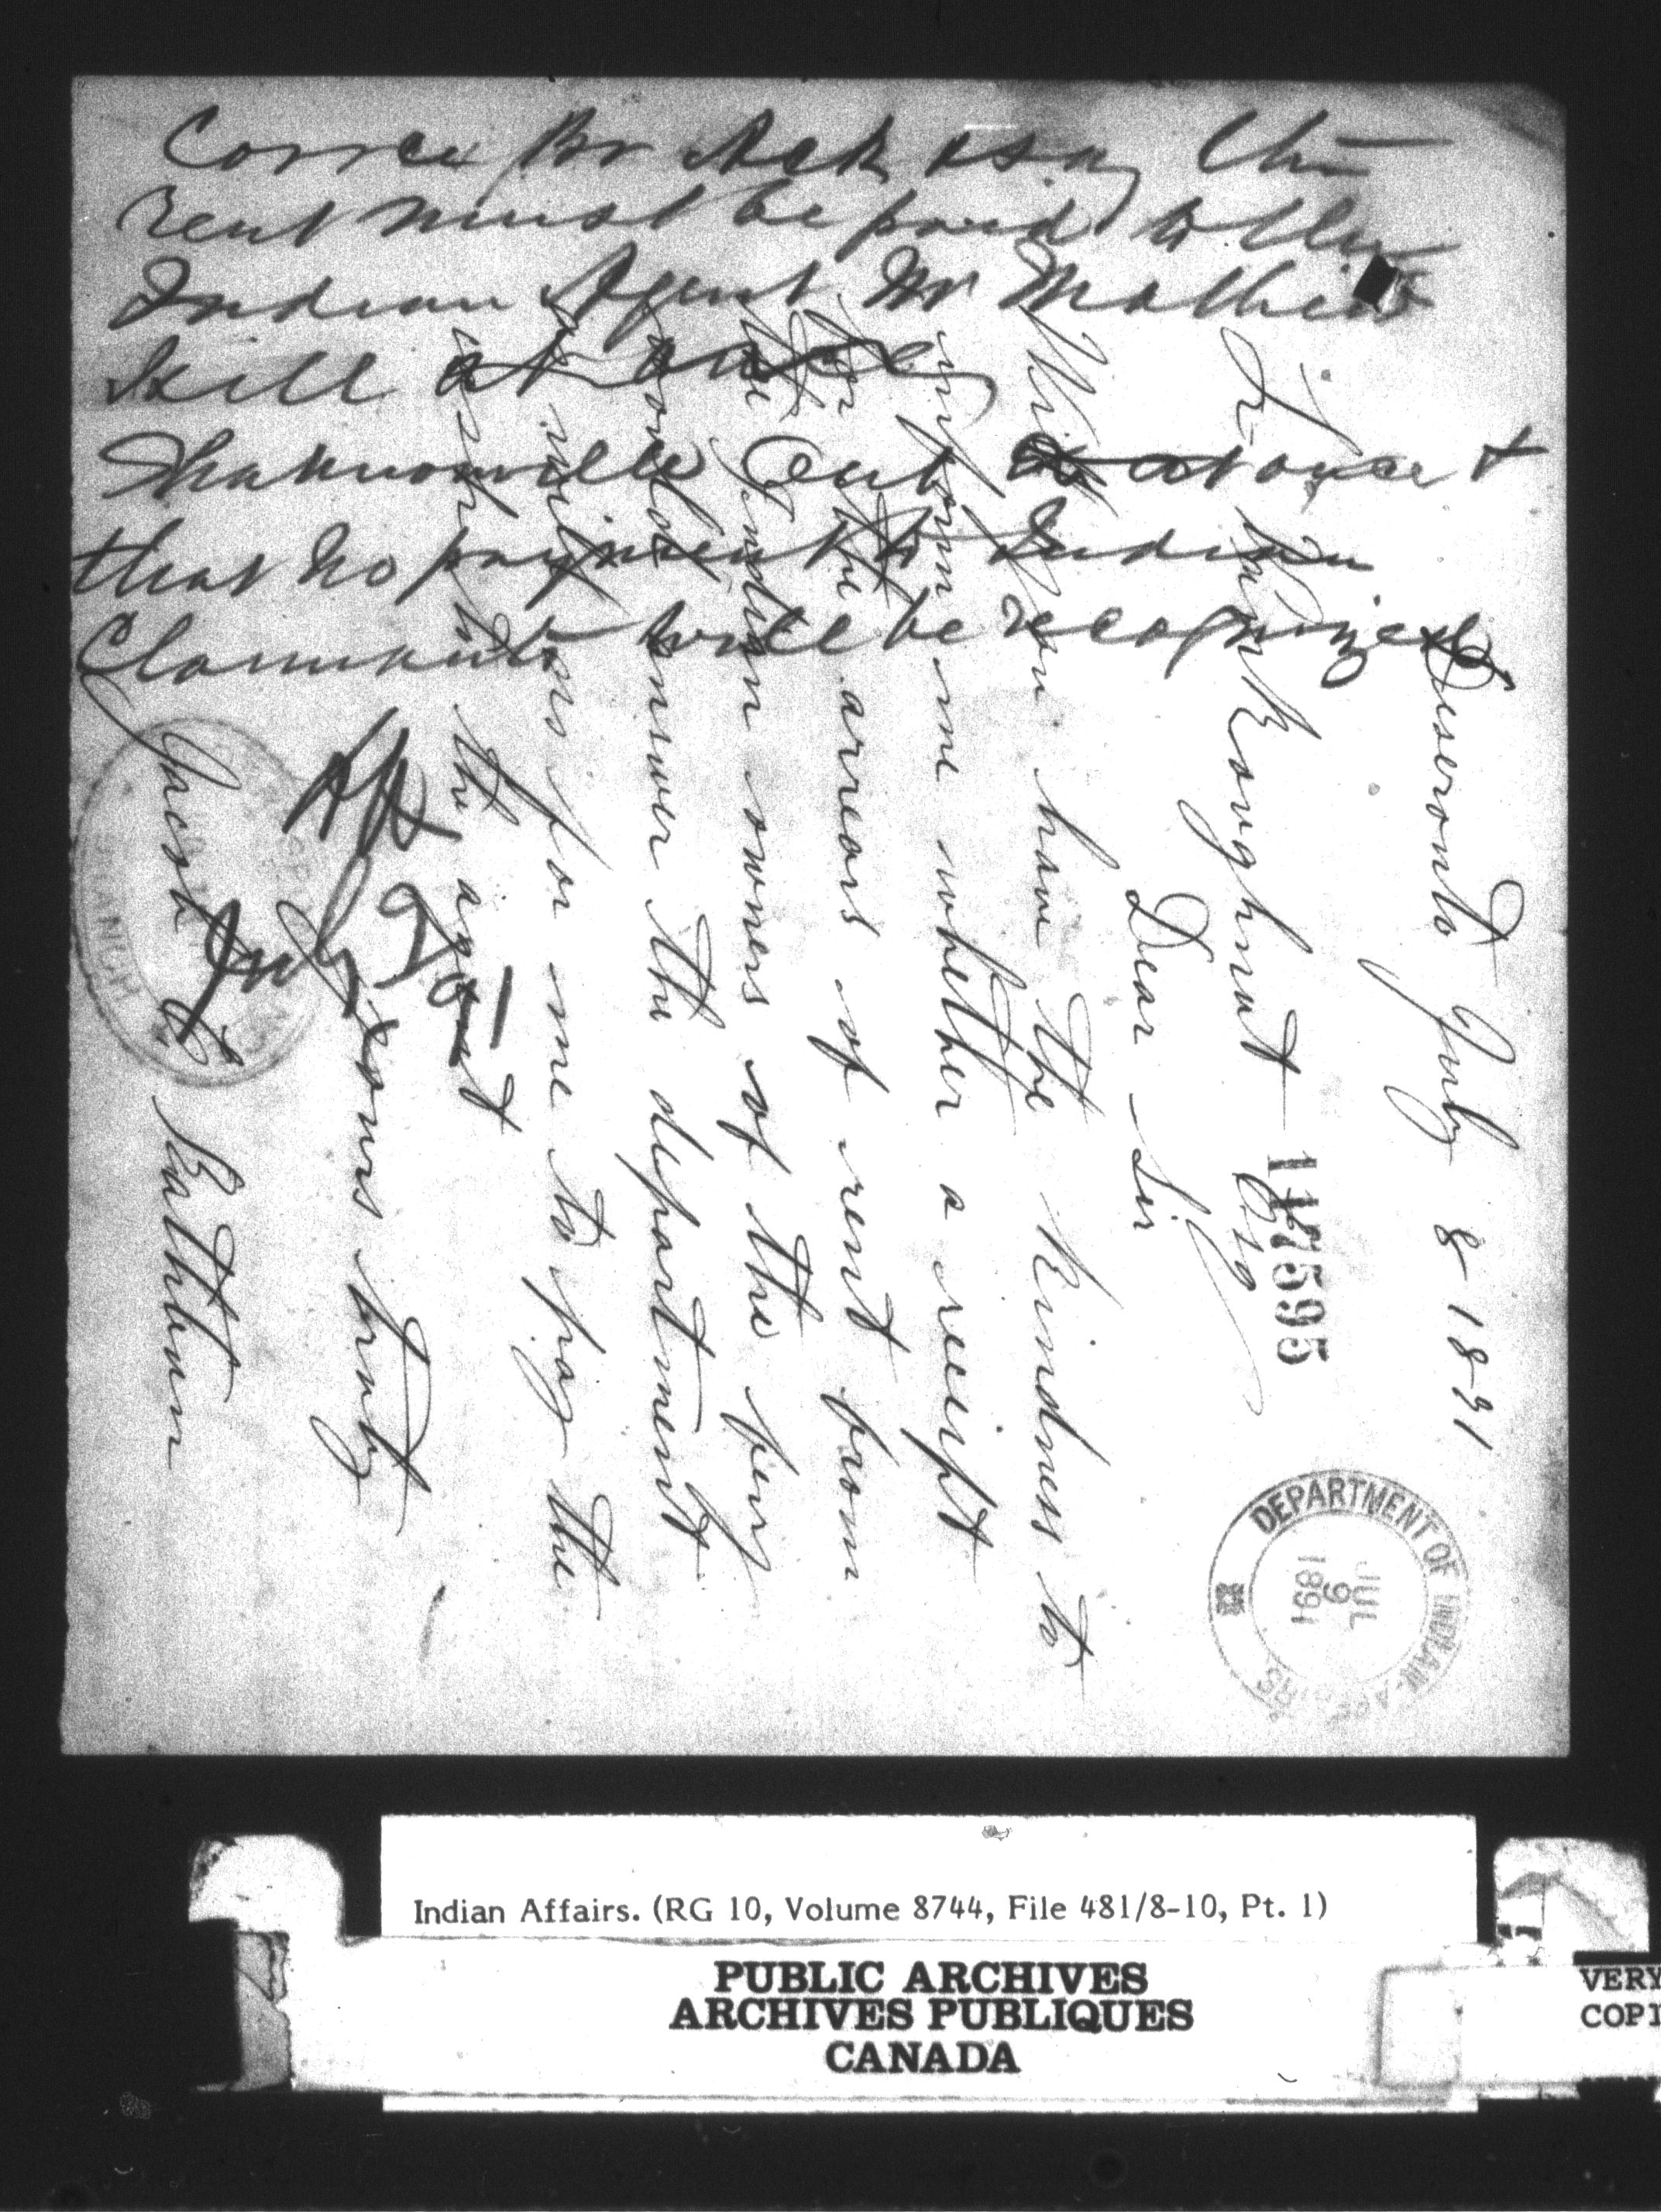 Corrce Br Ack & say the
rent must be paid to the
Indian Agent Mr Mathew
Hill at once
Shannonville Ont at once &
that no payment to Indian
Claimants will be recognized
July 9/91
Deseronto July 8 1891
Vankoughnut Esq
117595
Dear Sir
Will you have the kindness to
inform me whether a receipt
for the arrears of rent from
the Indian owners of the
answer the department
for me to pay the
the agent
Yours truly
Rathbun
DEPARTMENT OF INDIAN AFFAIRS
JUL
9
1891
Indian Affairs. (RG 10, Volume 8744, File 481/8-10, Pt. 1)
PUBLIC ARCHIVES
ARCHIVES PUBLIQUES
CANADA
VERY
COPI